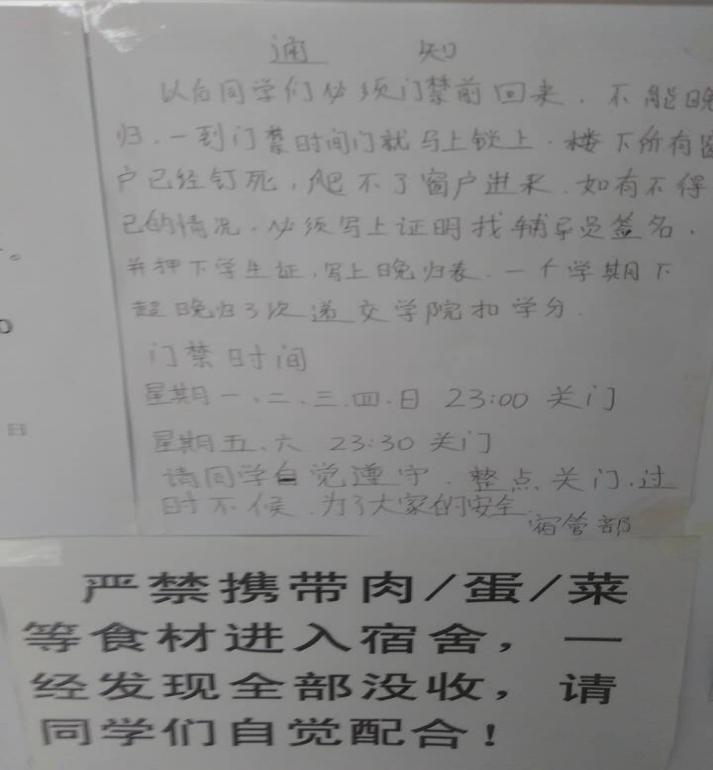 通 知
以后同学们必须门禁前回来.不能晚
归.一到门禁时间门就马上锁上.楼下所有窗
户已经钉死,爬不了窗户进来.如有不得
已的情况.必须写上证明找辅导员签名.
并押下学生证,写上晚归表.一个学期下
超晚归3次递交学院扣学分.
门禁时间
星期一、二、三.四.日 23:00 关门
星期五、六 23:30 关门
请同学自觉遵守.整点关门.过
时不候.为了大家的安全.
宿管部
日
严禁携带肉/蛋/菜
等食材进入宿舍,一
经发现全部没收,请
同学们自觉配合!